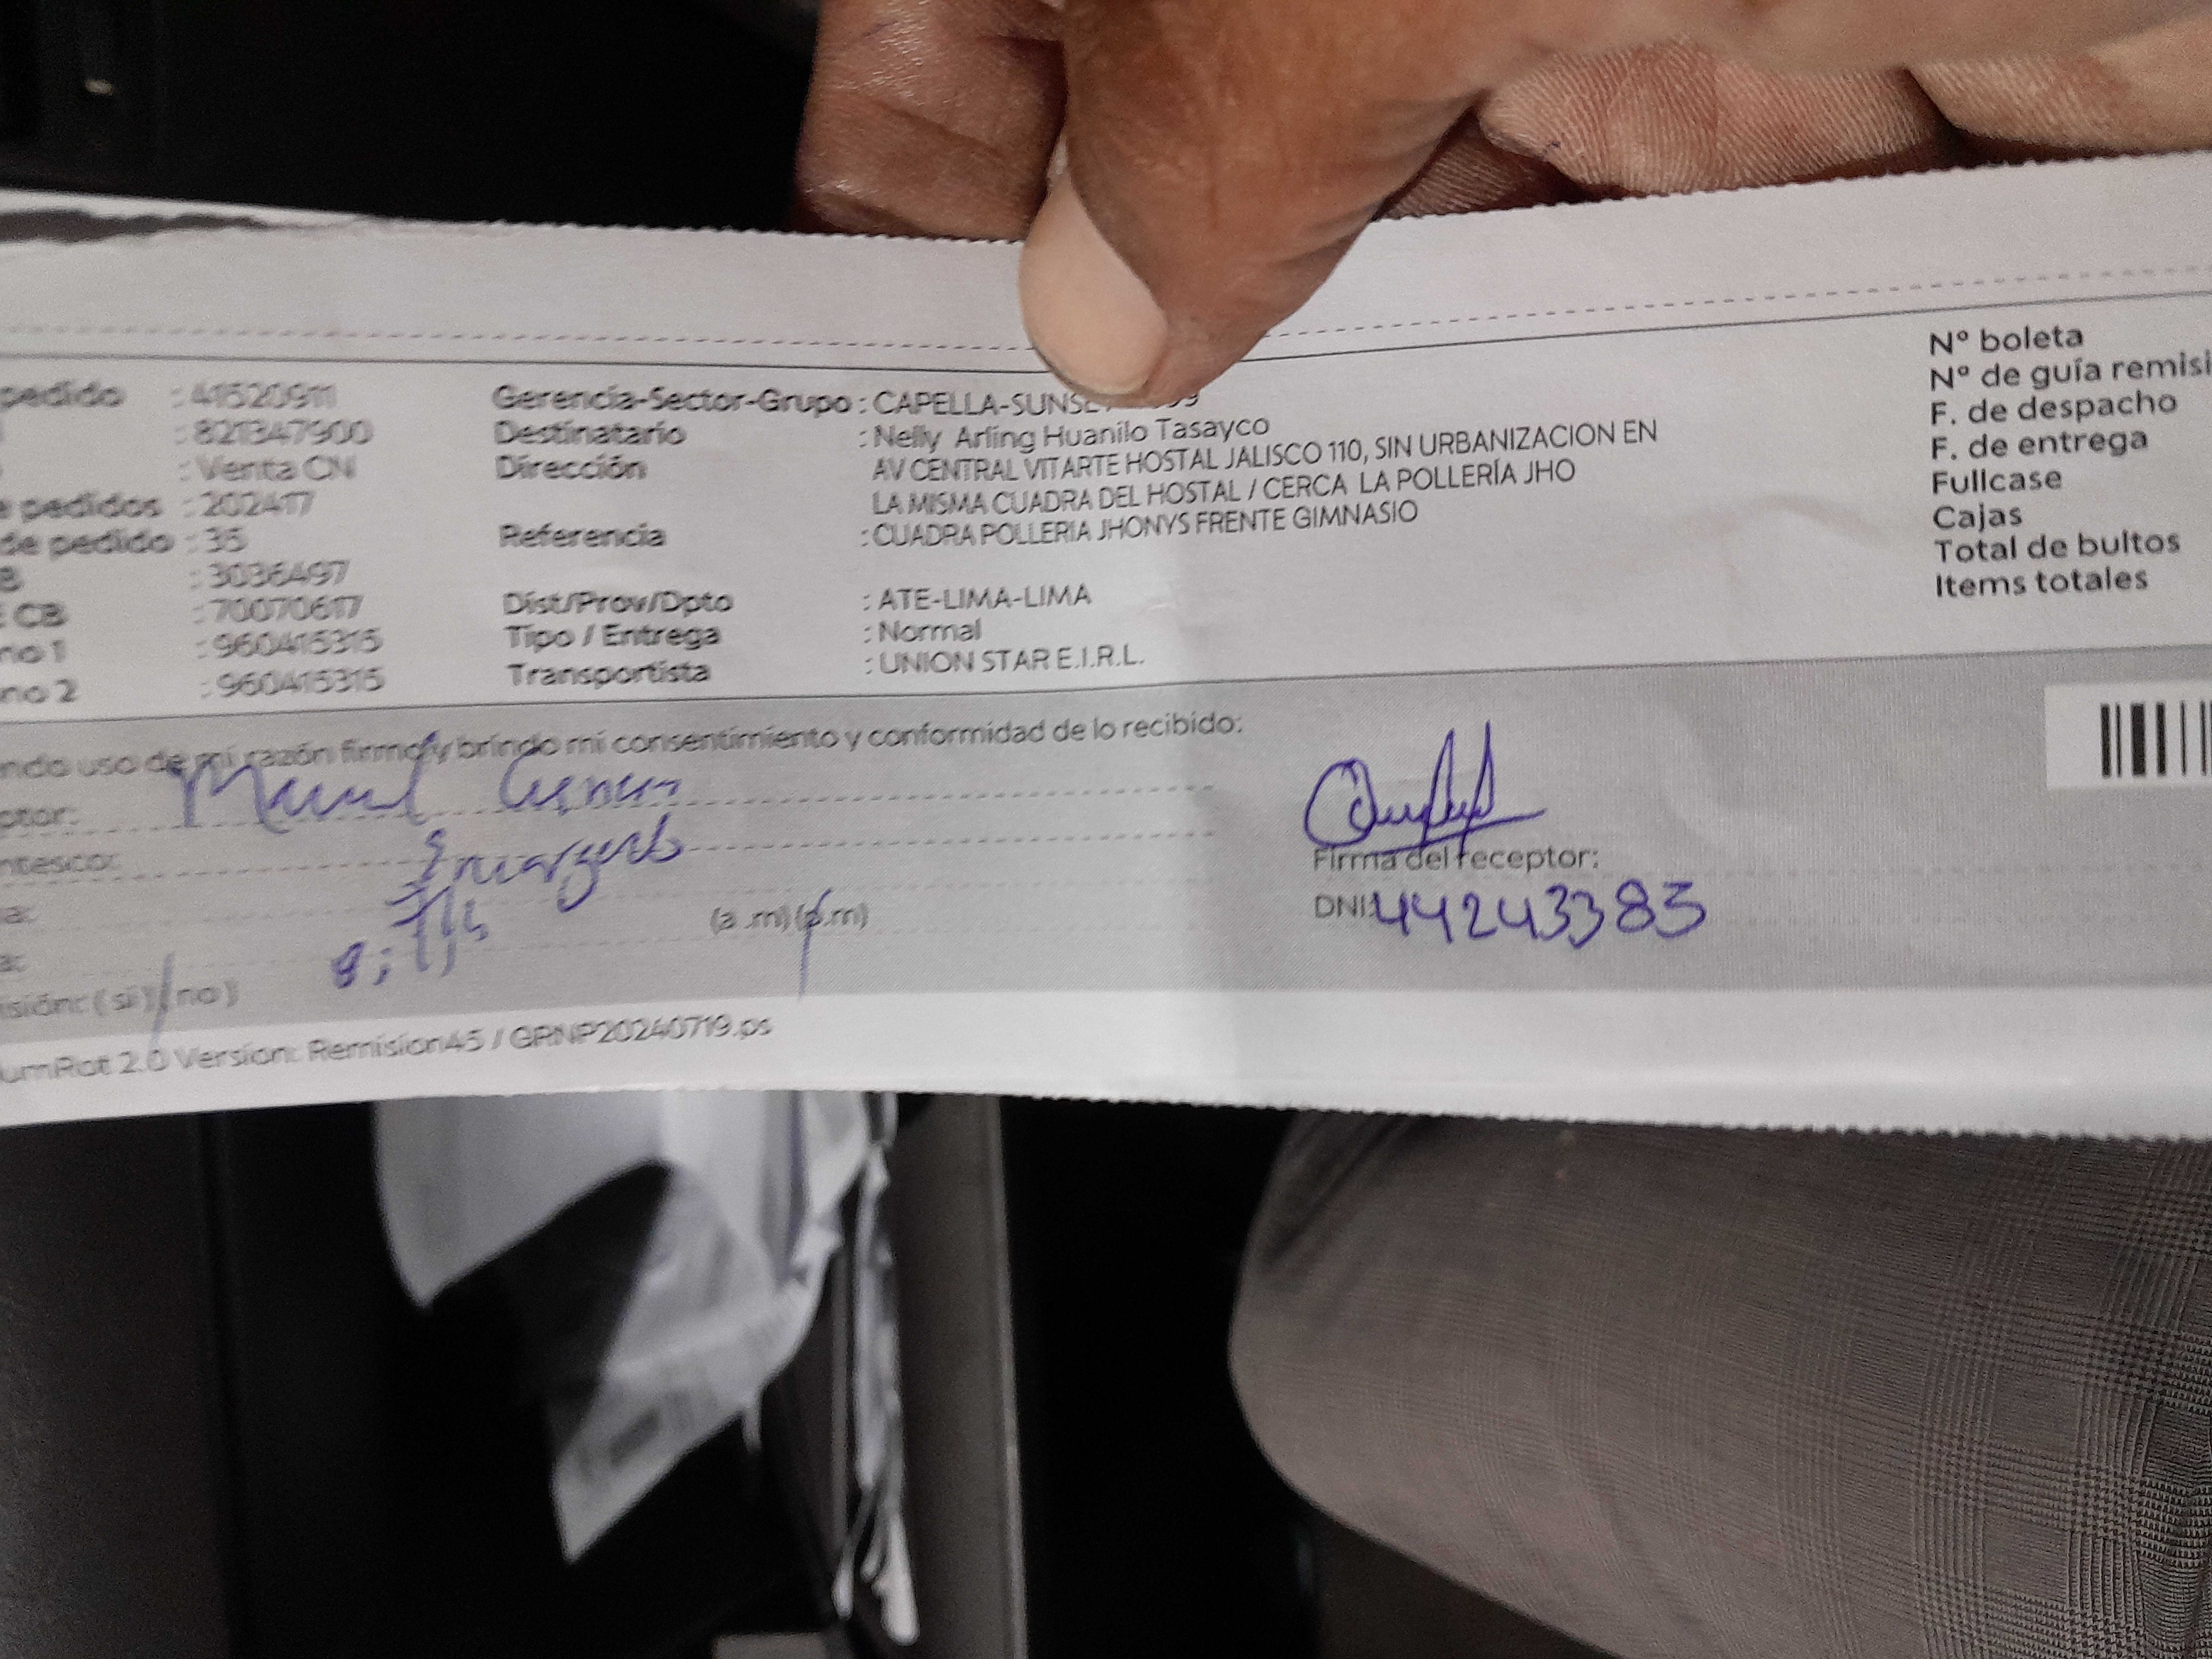 pedido : 41520911
: 821347900
: Venta CN
e pedidos : 202417
de pedido : 35
B : 3036497
E CB : 70070617
no 1 : 960415315
no 2 : 960415315
Gerencia-Sector-Grupo : CAPELLA-SUNSE
Destinatario : Nelly Arling Huanilo Tasayco
Dirección AV CENTRAL VITARTE HOSTAL JALISCO 110, SIN URBANIZACION EN
LA MISMA CUADRA DEL HOSTAL / CERCA LA POLLERÍA JHO
Referencia : CUADRA POLLERIA JHONYS FRENTE GIMNASIO
Dist/Prov/Dpto : ATE-LIMA-LIMA
Tipo / Entrega : Normal
Transportista : UNION STAR E.I.R.L.
Nº boleta
Nº de guía remisi
F. de despacho
F. de entrega
Fullcase
Cajas
Total de bultos
Items totales
ndo uso de mi razón firmo y brindo mi consentimiento y conformidad de lo recibido:
ptor:
ntesco: Encargado
a:
a: (a .m) (p.m)
isión: ( si ) ( no )
Firma del receptor:
DNI: 44243385
umRot 2.0 Version: Remision45 / GRNP20240719.ps